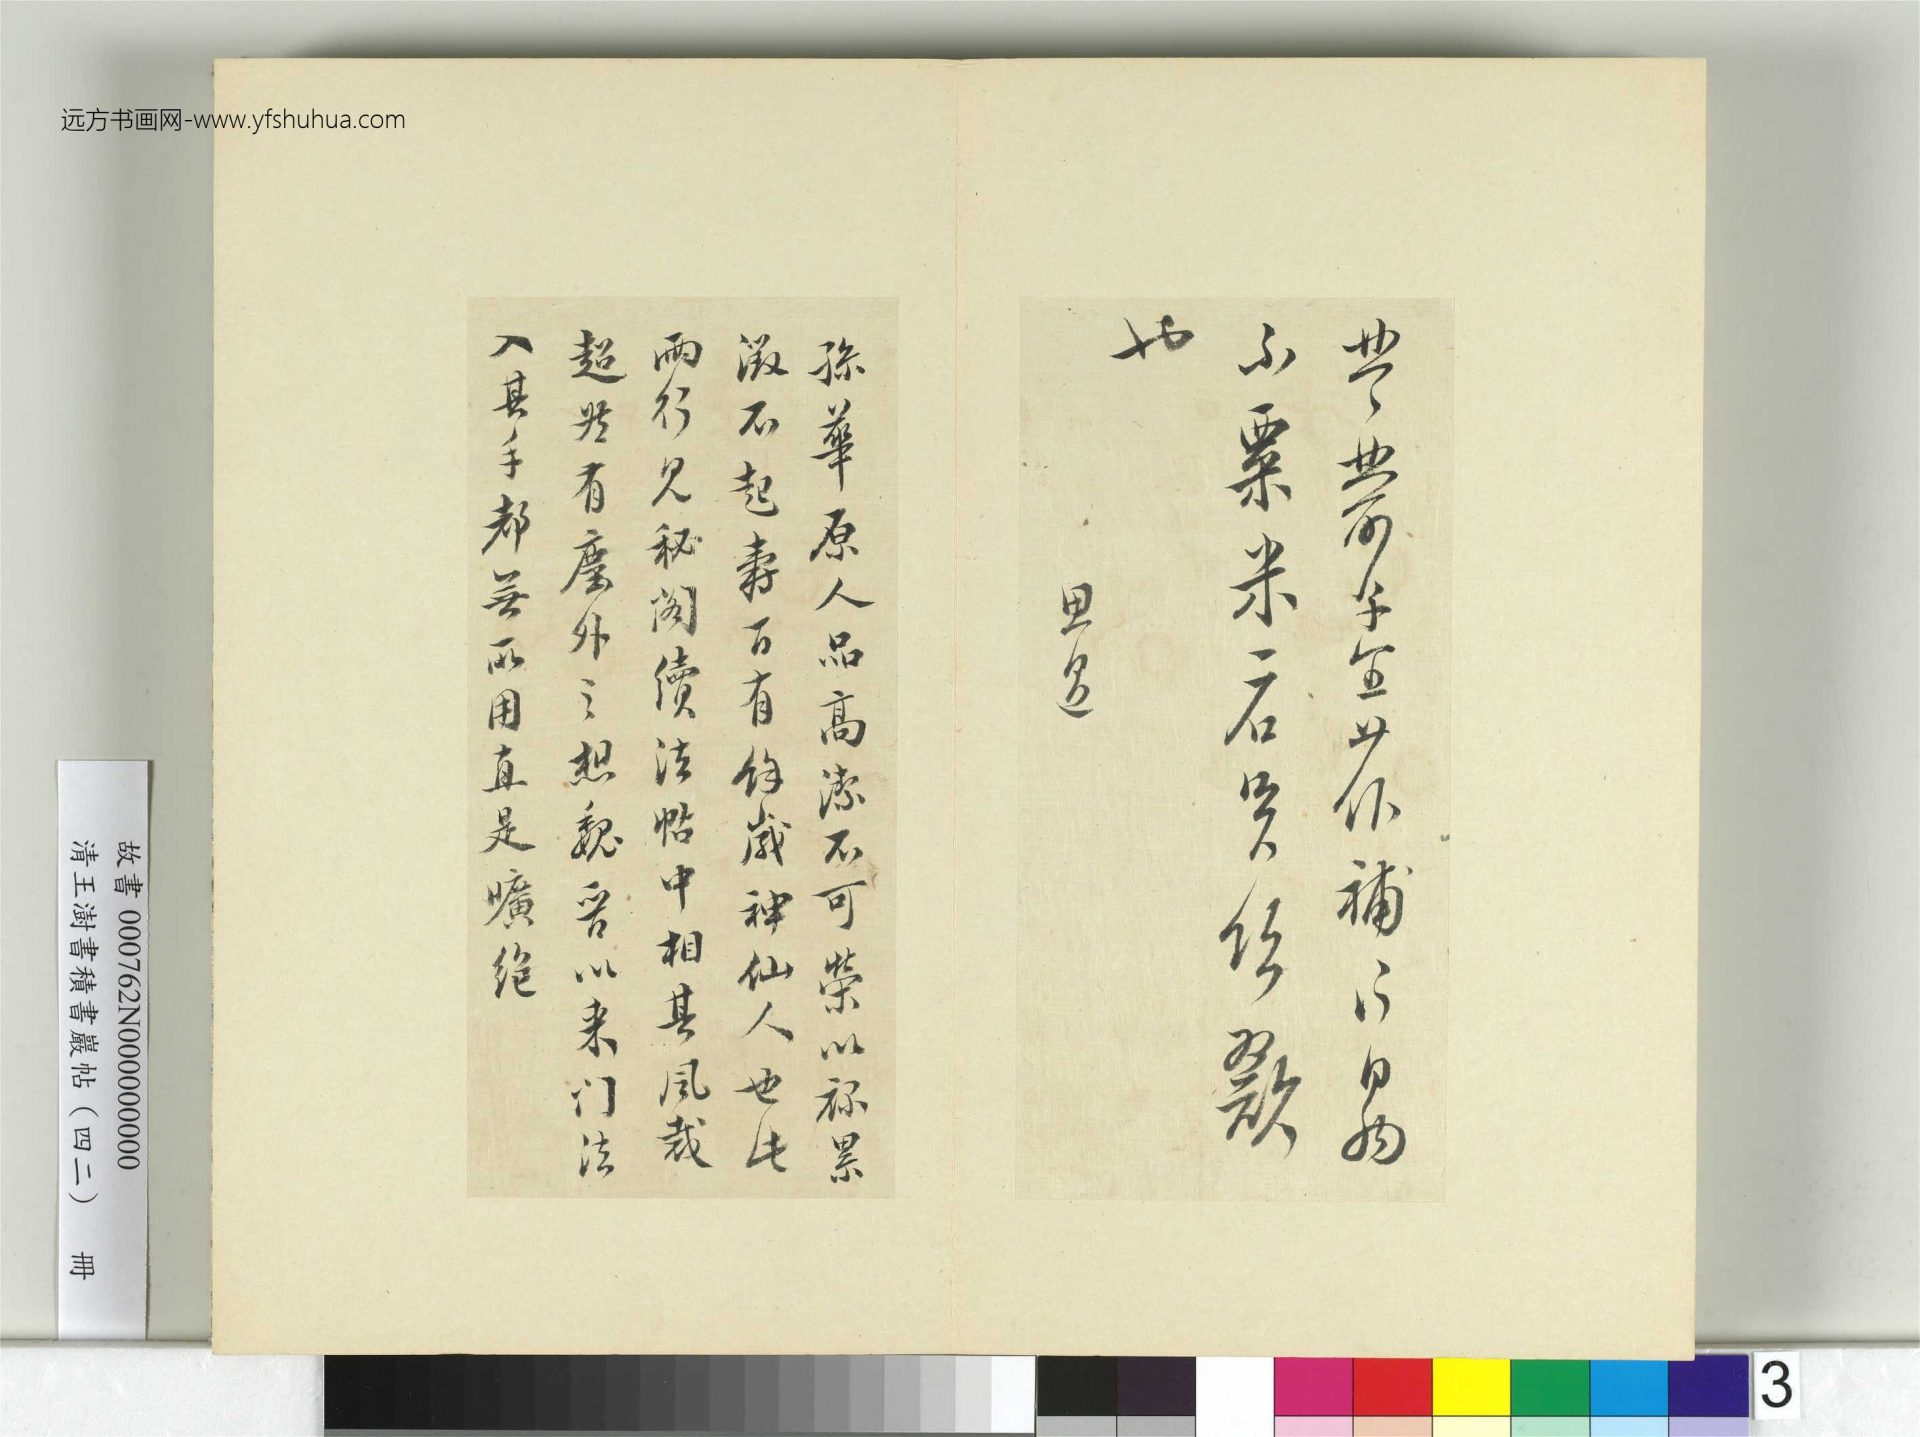 补行自
不粟米一石
也
思邈
孫華原人品高潔不可榮以祿累
徵不起壽百有餘歲神仙人也此
兩行見秘閣續法帖中相其風裁
超然有塵外之想魏晉以來門法
入其手都無所用直是曠絕
远方书画网-www.yfshuhua.com
故書 000762N000000000
清王澍書積書巖帖(四二) 冊
3